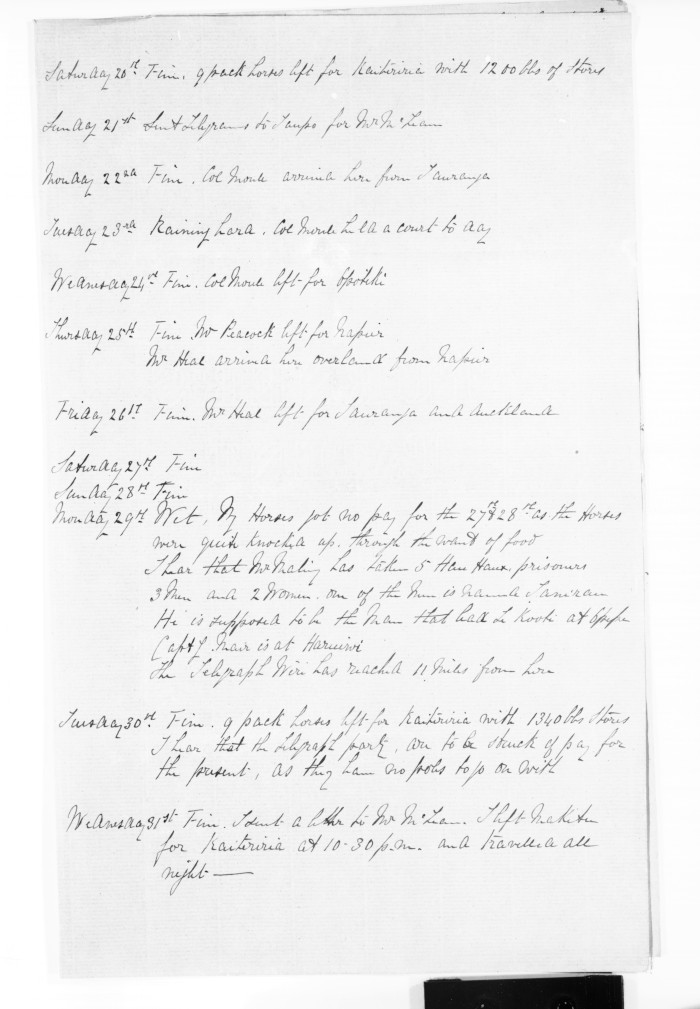 Saturday 20th Fine. 9 pack horses left for Kaiteriria with 1200 lbs of Stores
Sunday 21st Sent Telegrams to Taupo for Mr McLean
Monday 22nd Fine. Col Moule arrived here from Tauranga
Tuesday 23rd Raining hard. Col Moule held a court to day
Wednesday 24th Fine. Col Moule left for Opotiki
Thursday 25th Fine Mr Peacock left for Napier
Mr Heal arrived here overland from Napier
Friday 26st Fine. Mr Heal left for Tauranga and Auckland
Saturday 27th Fine
Sunday 28th Fine
Monday 29th Wet, My Horses got no pay for the 27th & 28th as the Horses
were quite knocked up. through the want of food
I hear that Mr Maling has taken 5 Hau Haux. prisoners
3 Men and 2 Women. one of the Men is named
He is supposed to be the Man that lead Te Kooti at Opepe
Capt G. Mair is at Haruiwi
The Telegraph Wire has reached 11 Miles from here
Tuesday 30th Fine. 9 pack horses left for Kaiteriria with 1340 lbs Stores
I hear that the telegraph party, are to be struck of pay for
the present, as they have no poles to go on with
Wednesday 31st Fine. I sent a letter to Mr McLean. I left Maketu
for Kaiteriria at 10-30 p.m. and travelled all
night —